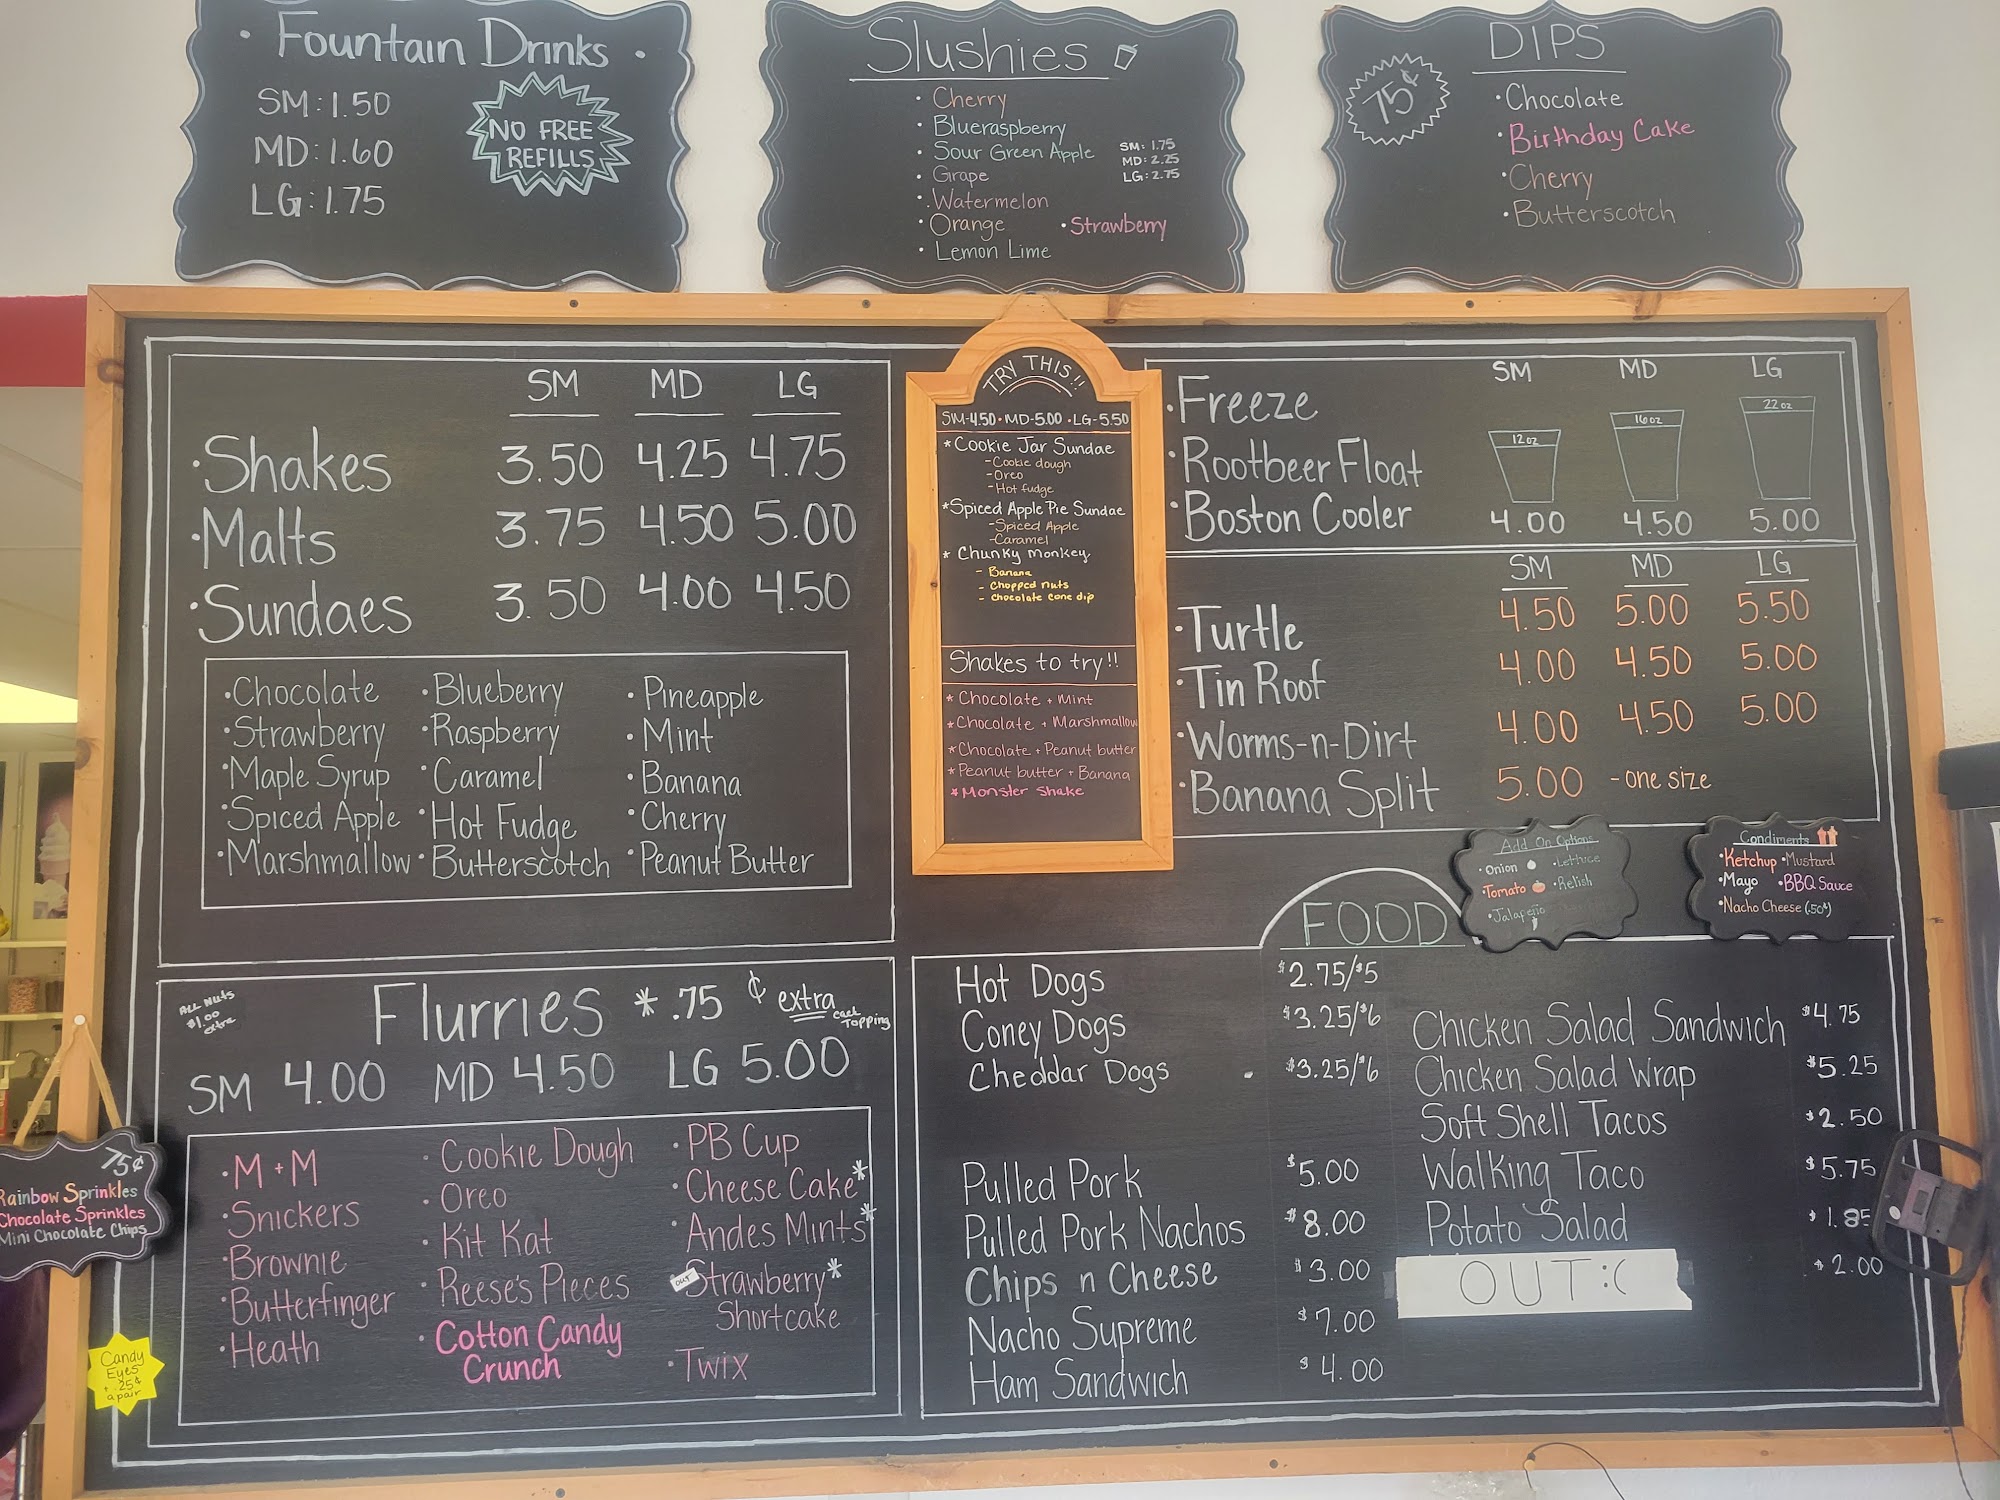 · Fountain Drinks ·
SM: 1.50
MD: 1.60
LG: 1.75
NO FREE
REFILLS
Slushies
· Cherry
· Blueraspberry
· Sour Green Apple
· Grape
· Watermelon
· Orange
· Strawberry
· Lemon Lime
SM: 1.75
MD: 2.25
LG: 2.75
DIPS
75¢
· Chocolate
· Birthday Cake
· Cherry
· Butterscotch
SM MD LG
· Shakes 3.50 4.25 4.75
· Malts 3.75 4.50 5.00
· Sundaes 3.50 4.00 4.50
· Chocolate · Blueberry · Pineapple
· Strawberry · Raspberry · Mint
· Maple Syrup · Caramel · Banana
· Spiced Apple · Hot Fudge · Cherry
· Marshmallow · Butterscotch · Peanut Butter
TRY THIS!!
SM-4.50 · MD-5.00 · LG-5.50
* Cookie Jar Sundae
- Cookie dough
- Oreo
- Hot fudge
* Spiced Apple Pie Sundae
- Spiced Apple
- Caramel
* Chunky Monkey
- Banana
- Chopped nuts
- Chocolate cone dip
Shakes to try!!
* Chocolate + Mint
* Chocolate + Marshmallow
* Chocolate + Peanut butter
* Peanut butter + Banana
* Monster Shake
SM MD LG
12 oz 16 oz 22 oz
· Freeze
· Rootbeer Float
· Boston Cooler 4.00 4.50 5.00
SM MD LG
· Turtle 4.50 5.00 5.50
· Tin Roof 4.00 4.50 5.00
· Worms-n-Dirt 4.00 4.50 5.00
· Banana Split 5.00 - one size
Add On Options
· Onion · Lettuce
· Tomato · Relish
· Jalapeño
Condiments
· Ketchup · Mustard
· Mayo · BBQ Sauce
· Nacho Cheese (.50¢)
ALL Nuts
$1.00
extra
Flurries * .75 ¢ extra each
TOPPING
SM 4.00 MD 4.50 LG 5.00
· M + M · Cookie Dough · PB Cup
· Snickers · Oreo · Cheese Cake*
· Brownie · Kit Kat · Andes Mints*
· Butterfinger · Reese's Pieces OUT Strawberry*
Shortcake
· Heath · Cotton Candy
Crunch
· Twix
75¢
Rainbow Sprinkles
Chocolate Sprinkles
Mini Chocolate Chips
Candy
Eyes
+ .25¢
a pair
FOOD
Hot Dogs $2.75/$5
Coney Dogs $3.25/$6
Cheddar Dogs - $3.25/$6
Pulled Pork $5.00
Pulled Pork Nachos $8.00
Chips n Cheese $3.00
Nacho Supreme $7.00
Ham Sandwich $4.00
Chicken Salad Sandwich $4.75
Chicken Salad Wrap $5.25
Soft Shell Tacos $2.50
Walking Taco $5.75
Potato Salad $1.85
OUT :( $2.00